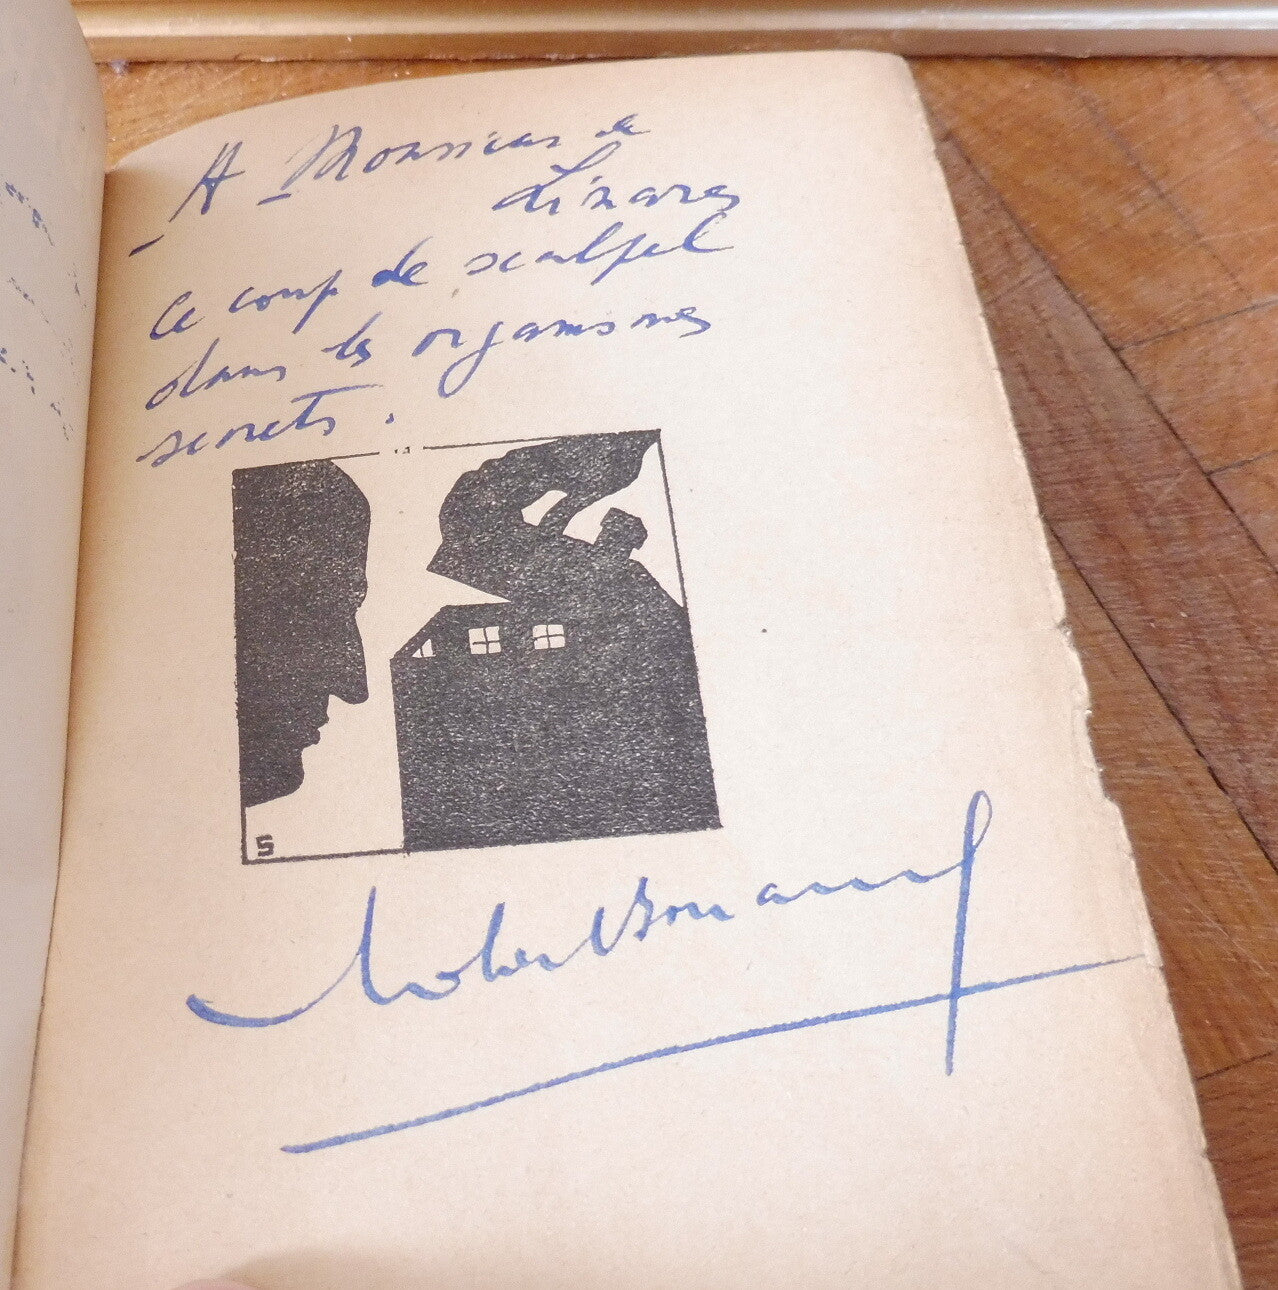 A Monsieur de
Linares
Ce coup de scalpel
dans les organismes
secrets.
S
Robert Bonnard